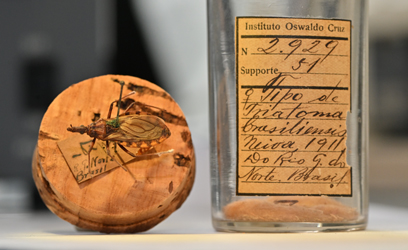 Norte
Brasil
Instituto Oswaldo Cruz
N 2.929
Supporte 51
♀ Tipo de
Triatoma
brasiliensis
Neiva 1911
Do Rio G. do
Norte, Brasil